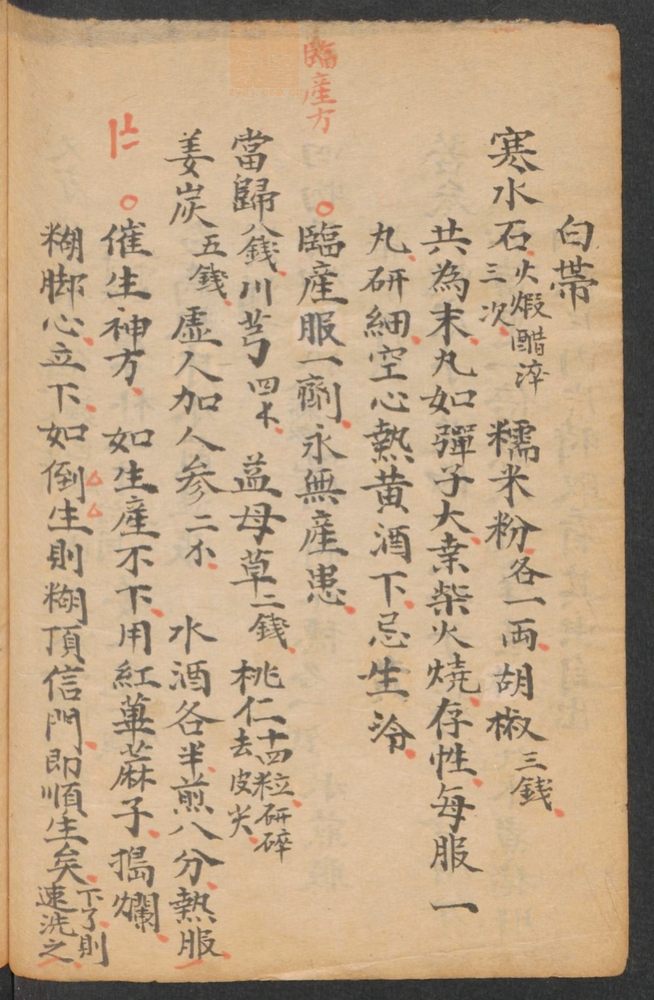 白帶
寒水石火煅醋淬三次 糯米粉各一両胡椒三錢
共為末丸如彈子大桒柴火燒存性每服一
丸研細空心熱黄酒下忌生冷
臨産方
臨産服一劑永無産患
當歸八錢川芎四小 益母草二錢桃仁十四粒研碎去皮尖
姜炭五錢 虛人加人参二小 水酒各半煎八分熱服
催生神方 如生產不下用紅萆蔴子搗爛
糊脚心立下如倒生則糊頂信門即順生矣下了則速洗之